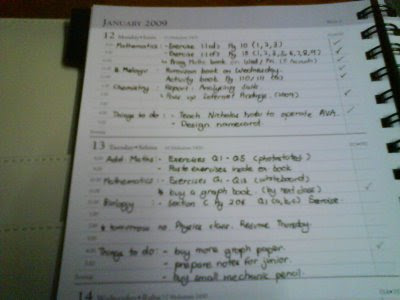 JANUARY 2009
12 Monday • Isnin
Mathematics : - Exercise 11d's Pg 10 (1,2,3)
- Exercise 11d's Pg 15
* Bring Maths book on Wed/Fri
B. Melayu : - Karangan book on Wednesday.
- Activity book Pg 110/111 (B)
Chemistry : - Report: Analysing
* Internet Findings.
Things to do : - Teach Nicholas to operate AVA.
- Design namecard.
13 Tuesday • Selasa
Add Maths : - Exercises Q1 - Q5 (photostated)
- Paste exercises note on book
Mathematics : - Exercises Q1 - Q13 (whiteboard)
* buy a graph book (by next class)
Biology : - Section C Pg 208 Q1 (a,b,c)
* tomorrow no Physics class. Resume Thursday.
Things to do : - buy more graph paper.
- prepare notes for junior.
- buy small mechanic pencil.
14